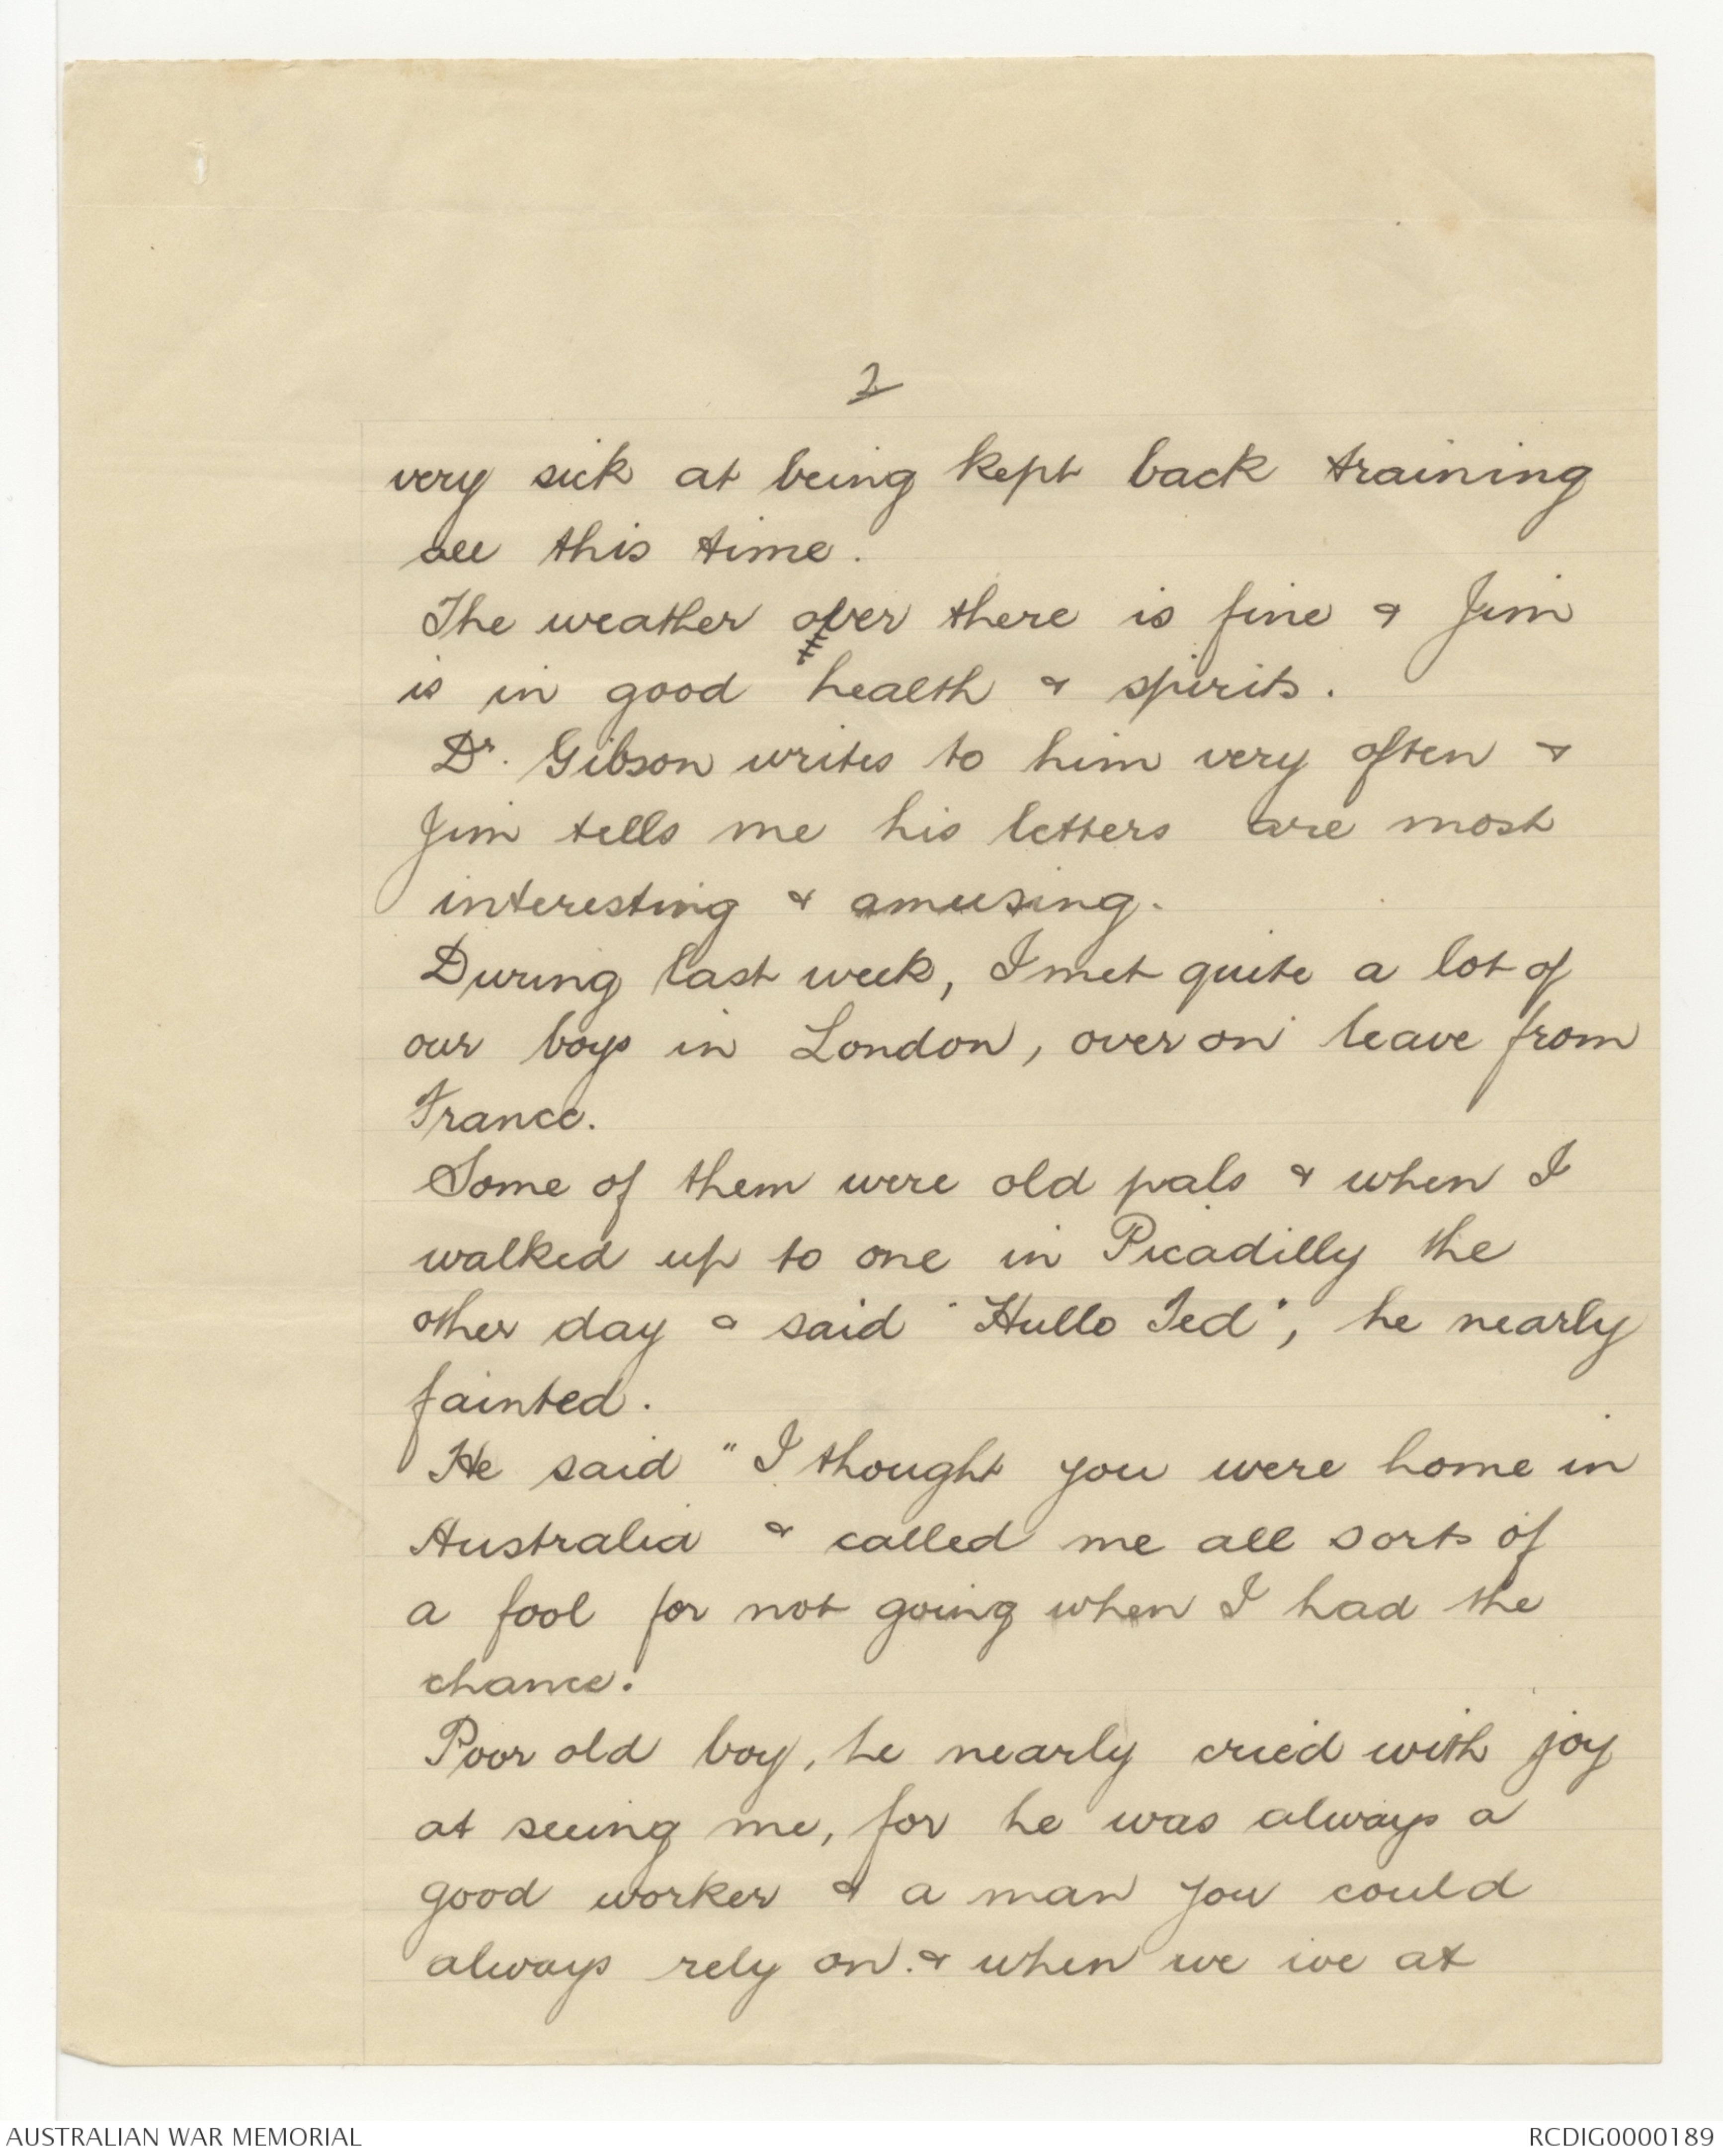 2
very sick at being kept back training
all this time.
The weather over there is fine & Jim
is in good health & spirits.
Dr. Gibson writes to him very often &
Jim tells me his letters are most
interesting & amusing.
During last week, I met quite a lot of
our boys in London, over on leave from
France.
Some of them were old pals & when I
walked up to one in Picadilly the
other day & said "Hullo Ted", he nearly
fainted.
He said "I thought you were home in
Australia & called me all sorts of
a fool for not going when I had the
chance.
Poor old boy, he nearly cried with joy
at seeing me, for he was always a
good worker & a man you could
always rely on. & when we we at
AUSTRALIAN WAR MEMORIAL
RCDIG0000189